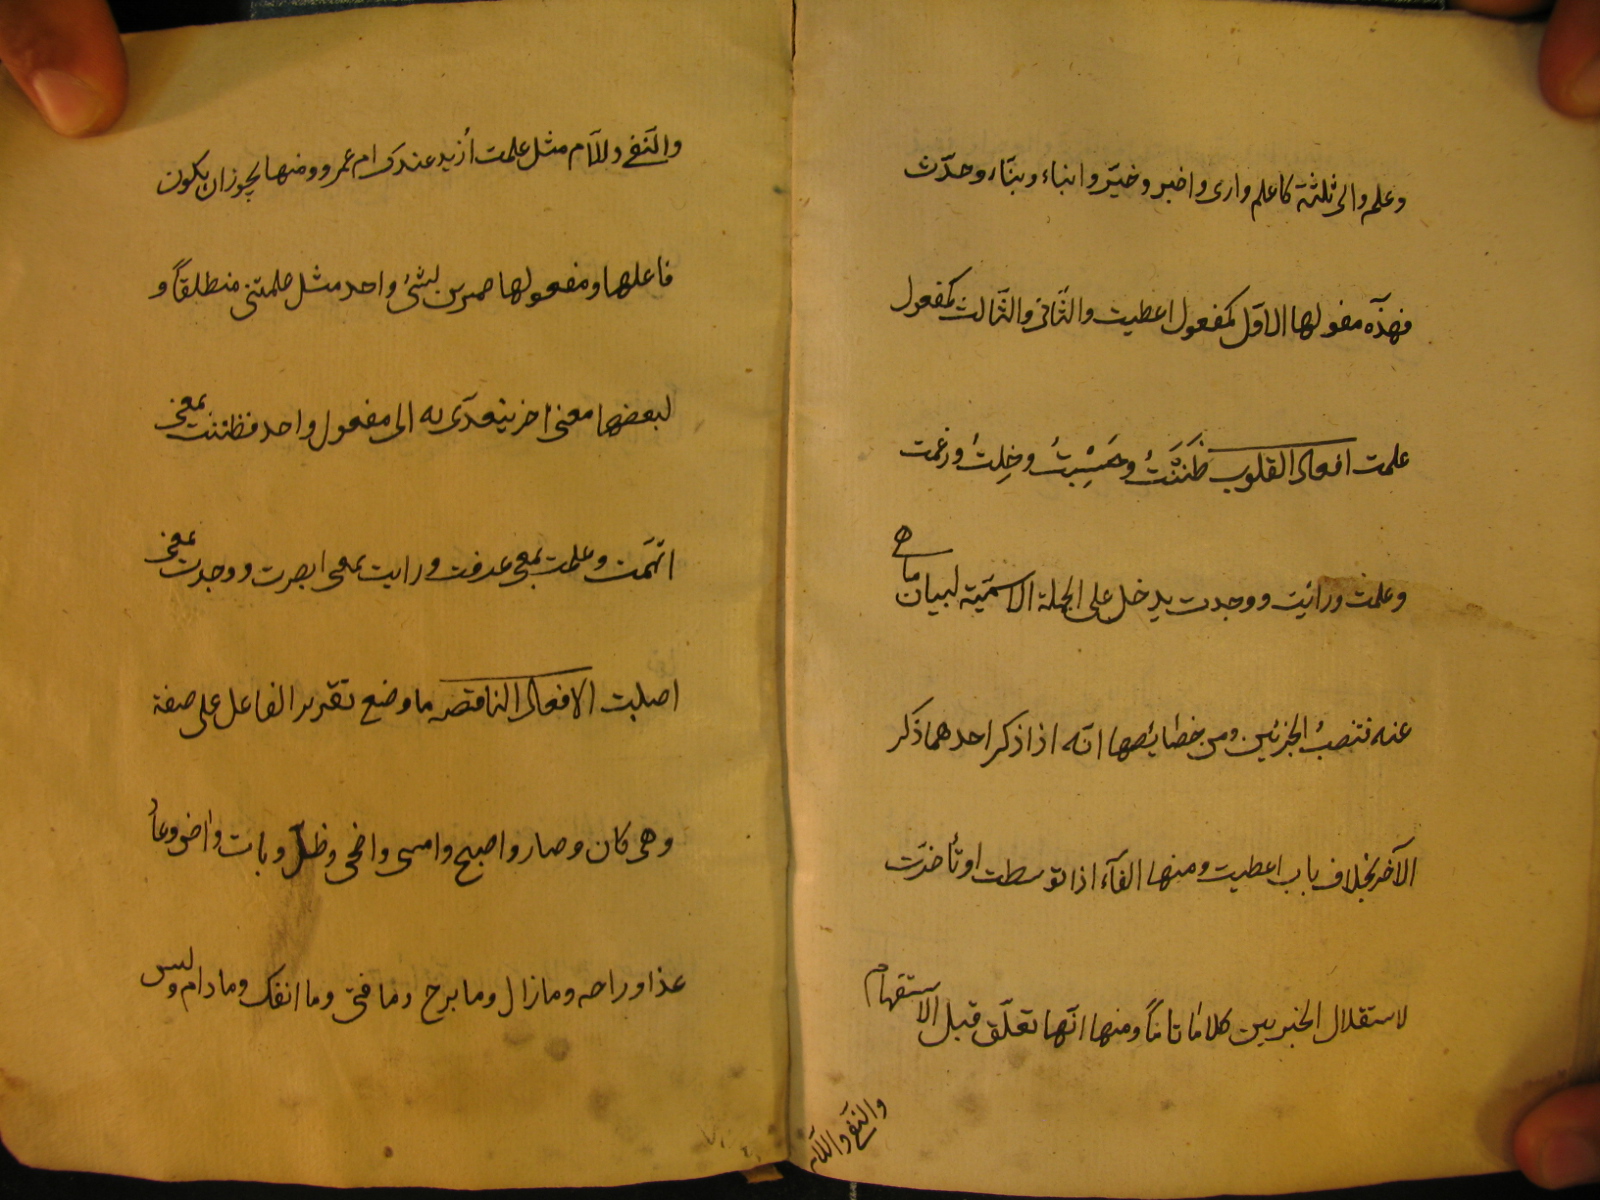 وعلم والى ثلثة كاعلم وارى واخبر وخبّر وانباء ونبّاء وحدّث
فهذه مفولها الاوّل كمفعول اعطيت والثّانى والثّالث كمفعول
علمت افعال القلوب ظَنَنْتُ وحَسِبْتُ وخِلتُ وزعمت
وعلمت ورائيت ووجدت يدخل على الجملة الاسميّة لبيان ما هى
عنه فتنصبُ الجزئين ومن خصائصها انّه اذا ذكر احدهما ذكر
الآخر بخلاف باب اعطيت ومنها الغآء اذا توسطت او تأخرت
لاستقلال الخبرين كلامًا تامًا ومنها انّها تعلّق قبل الاستفهام
والنّفى واللّام
والنّفى واللام مثل علمت أزيد عندك ام عمرو ومنها يجوز ان يكون
فاعلها ومفعولها ضميرين لشئ واحد مثل علمتنى منطلقاً و
لبعضها معنى اخر يتعدّى به الى مفعول واحد فظننت بمعنى
اتّهمت وعلمت بمعنى عرفت ورايت بمعنى ابصرت ووجدت بمعنى
اصلبت الافعال الناقصه ما وضع تقرير الفاعل على صفة
وهى كان وصار واصبح وامسى واضحى وظلّ وبات واض وعاد
غدا وراحه ومازال وما برح وما فتى وما انفك وما دام وليس